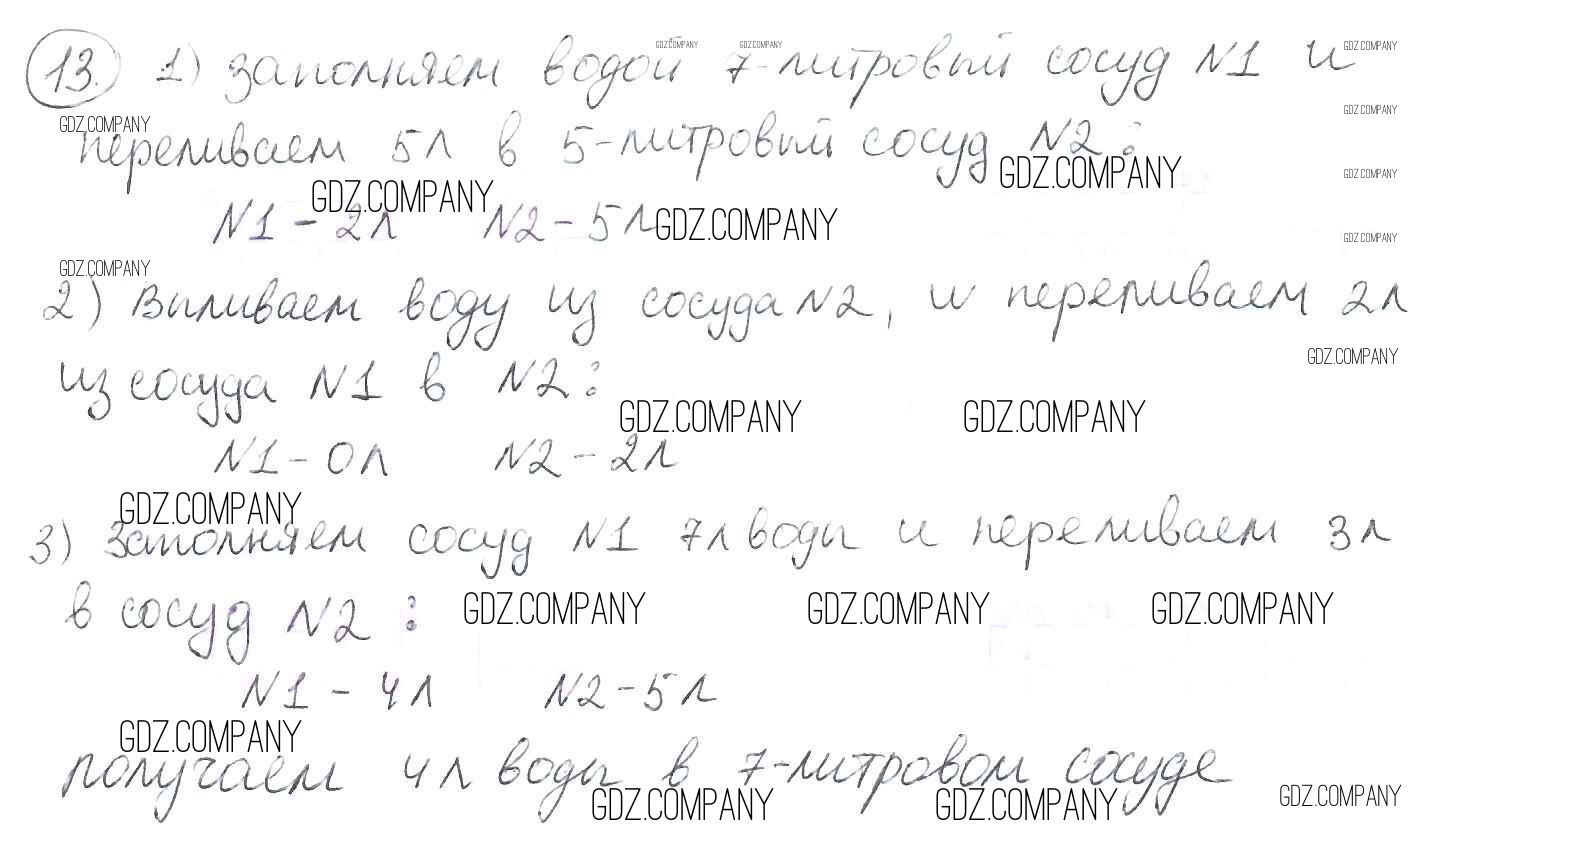 13. 1) Заполняем водой 7-литровый сосуд N1 и
переливаем 5л в 5-литровый сосуд N2:
N1 - 2л N2 - 5л
2) Выливаем воду из сосуда N2, и переливаем 2л
из сосуда N1 в N2:
N1 - 0л N2 - 2л
3) Заполняем сосуд N1 7л воды и переливаем 3л
в сосуд N2:
N1 - 4л N2 - 5л
получаем 4л воды в 7-литровом сосуде
GDZ.COMPANY GDZ.COMPANY GDZ.COMPANY
GDZ.COMPANY
GDZ.COMPANY
GDZ.COMPANY
GDZ.COMPANY
GDZ.COMPANY
GDZ.COMPANY
GDZ.COMPANY
GDZ.COMPANY
GDZ.COMPANY
GDZ.COMPANY GDZ.COMPANY
GDZ.COMPANY
GDZ.COMPANY GDZ.COMPANY GDZ.COMPANY
GDZ.COMPANY
GDZ.COMPANY GDZ.COMPANY GDZ.COMPANY